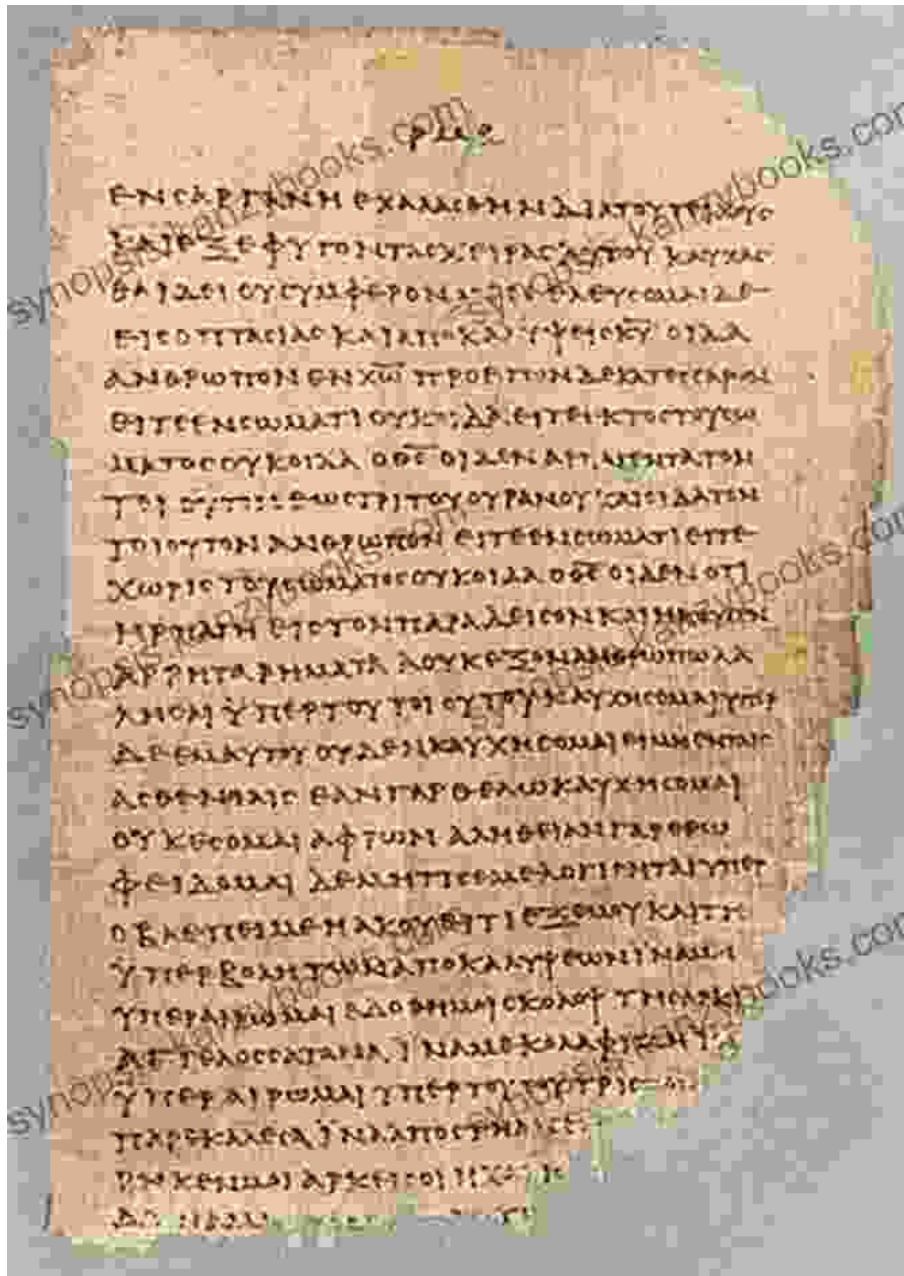 ΕΝϹΑΡΓΑΝΗ ΕΧΑΛΑϹΘΗΝ ΔΙΑΤΟΥΤΕΙΧΟΥϹ
ΚΑΙΕΞΕΦΥΓΟΝΤΑϹΧΕΙΡΑϹΑΥΤΟΥ ΚΑΥΧΑϹ
ΘΑΙΔΕΙ ΟΥϹΥΜΦΕΡΟΝ ΕΛΕΥϹΟΜΑΙΔΕ
ΕΙϹΟΠΤΑϹΙΑϹ ΚΑΙΑΠΟΚΑΛΥΨΕΙϹΚ̅Υ̅ ΟΙΔΑ
ΑΝΘΡΩΠΟΝ ΕΝΧ̅Ω̅ ΠΡΟΕΤΩΝΔΕΚΑΤΕϹϹΑΡΩΝ
ΕΙΤΕΕΝϹΩΜΑΤΙΟΥΚΟΙΔΑ ΕΙΤΕΕΚΤΟϹΤΟΥϹΩ
ΜΑΤΟϹΟΥΚΟΙΔΑ ΟΘ̅Ϲ̅ ΟΙΔΕΝ ΑΡΠΑΓΕΝΤΑΤΟΝ
ΤΟΙΟΥΤΟΝ ΕΩϹΤΡΙΤΟΥΟΥΡΑΝΟΥ ΚΑΙΟΙΔΑΤΟΝ
ΤΟΙΟΥΤΟΝ ΑΝΘΡΩΠΟΝ ΕΙΤΕΕΝϹΩΜΑΤΙΕΙΤΕ
ΧΩΡΙϹΤΟΥϹΩΜΑΤΟϹΟΥΚΟΙΔΑ ΟΘ̅Ϲ̅ ΟΙΔΕΝ ΟΤΙ
ΗΡΠΑΓΗ ΕΙϹΤΟΝΠΑΡΑΔΕΙϹΟΝ ΚΑΙΗΚΟΥϹΕΝ
ΑΡΡΗΤΑΡΗΜΑΤΑ ΑΟΥΚΕΞΟΝΑΝΘΡΩΠΩΛΑ
ΛΗϹΑΙ ΥΠΕΡΤΟΥ ΤΟΙΟΥΤΟΥΚΑΥΧΗϹΟΜΑΙΥΠΕΡ
ΔΕΕΜΑΥΤΟΥ ΟΥΔΕΝΚΑΥΧΗϹΟΜΑΙ ΕΙΜΗΕΝΤΑΙϹ
ΑϹΘΕΝΕΙΑΙϹ ΕΑΝΓΑΡΘΕΛΩΚΑΥΧΗϹΟΜΑΙ
ΟΥΚΕϹΟΜΑΙ ΑΦΡΩΝ ΑΛΗΘΕΙΑΝΓΑΡΕΡΩ
ΦΕΙΔΟΜΑΙ ΔΕΜΗΤΙϹΕΜΕΛΟΓΙϹΗΤΑΙΥΠΕΡ
ΟΒΛΕΠΕΙΜΕΗΑΚΟΥΕΙΤΙΕΞΕΜΟΥΚΑΙΤΗ
ΥΠΕΡΒΟΛΗΤΩΝΑΠΟΚΑΛΥΨΕΩΝΙΝΑΜΗ
ΥΠΕΡΑΙΡΩΜΑΙ ΕΔΟΘΗΜΟΙϹΚΟΛΟΨ ΤΗϹΑΡΚΙ
ΑΓΓΕΛΟϹϹΑΤΑΝΑ ΙΝΑΜΕΚΟΛΑΦΙΖΗ
ΥΠΕΡΑΙΡΩΜΑΙ ΥΠΕΡΤΟΥΤΟΥΤΡΙϹ
ΠΑΡΕΚΑΛΕϹΑ ΙΝΑΑΠΟϹΤΗΑΠ
ΡΗΚΕΝΜΟΙ ΑΡΚΕΙϹΟΙ ΗΧΑ
synopsis.kanzybooks.com